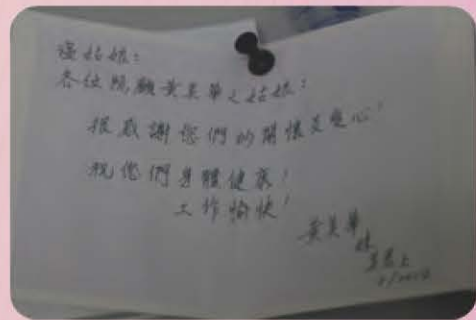 姑娘：
各位照顧黃美華之姑娘：
很感謝您們的關懷及愛心！
祝您們身體健康！
工作愉快！
黃美華
妹
上